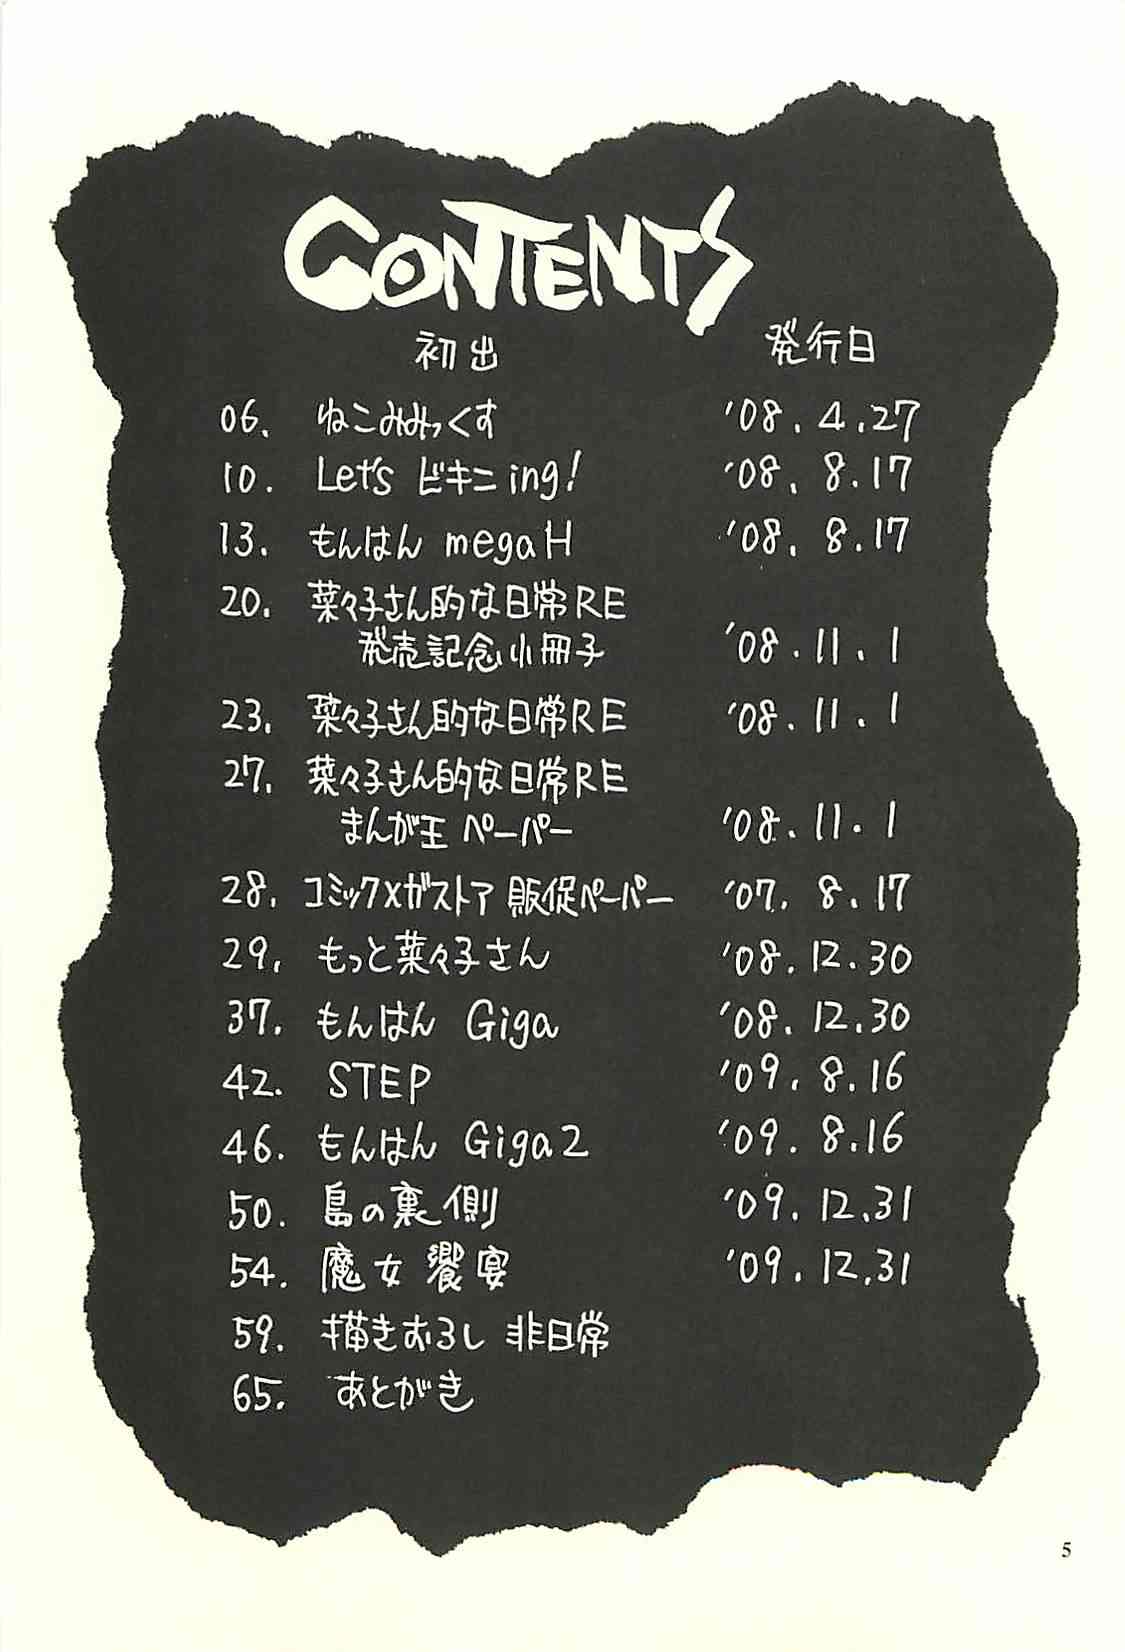 CONTENTS
初出 発行日
06. ねこみみっくす '08.4.27
10. Let's ビキニing! '08.8.17
13. もんはん megaH '08.8.17
20. 菜々子さん的な日常RE
発売記念小冊子 '08.11.1
23. 菜々子さん的な日常RE '08.11.1
27. 菜々子さん的な日常RE
まんが王 ペーパー '08.11.1
28. コミック×ガストア 販促ペーパー '07.8.17
29. もっと菜々子さん '08.12.30
37. もんはん Giga '08.12.30
42. STEP '09.8.16
46. もんはん Giga2 '09.8.16
50. 島の裏側 '09.12.31
54. 魔女饗宴 '09.12.31
59. 描きおろし 非日常
65. あとがき
5